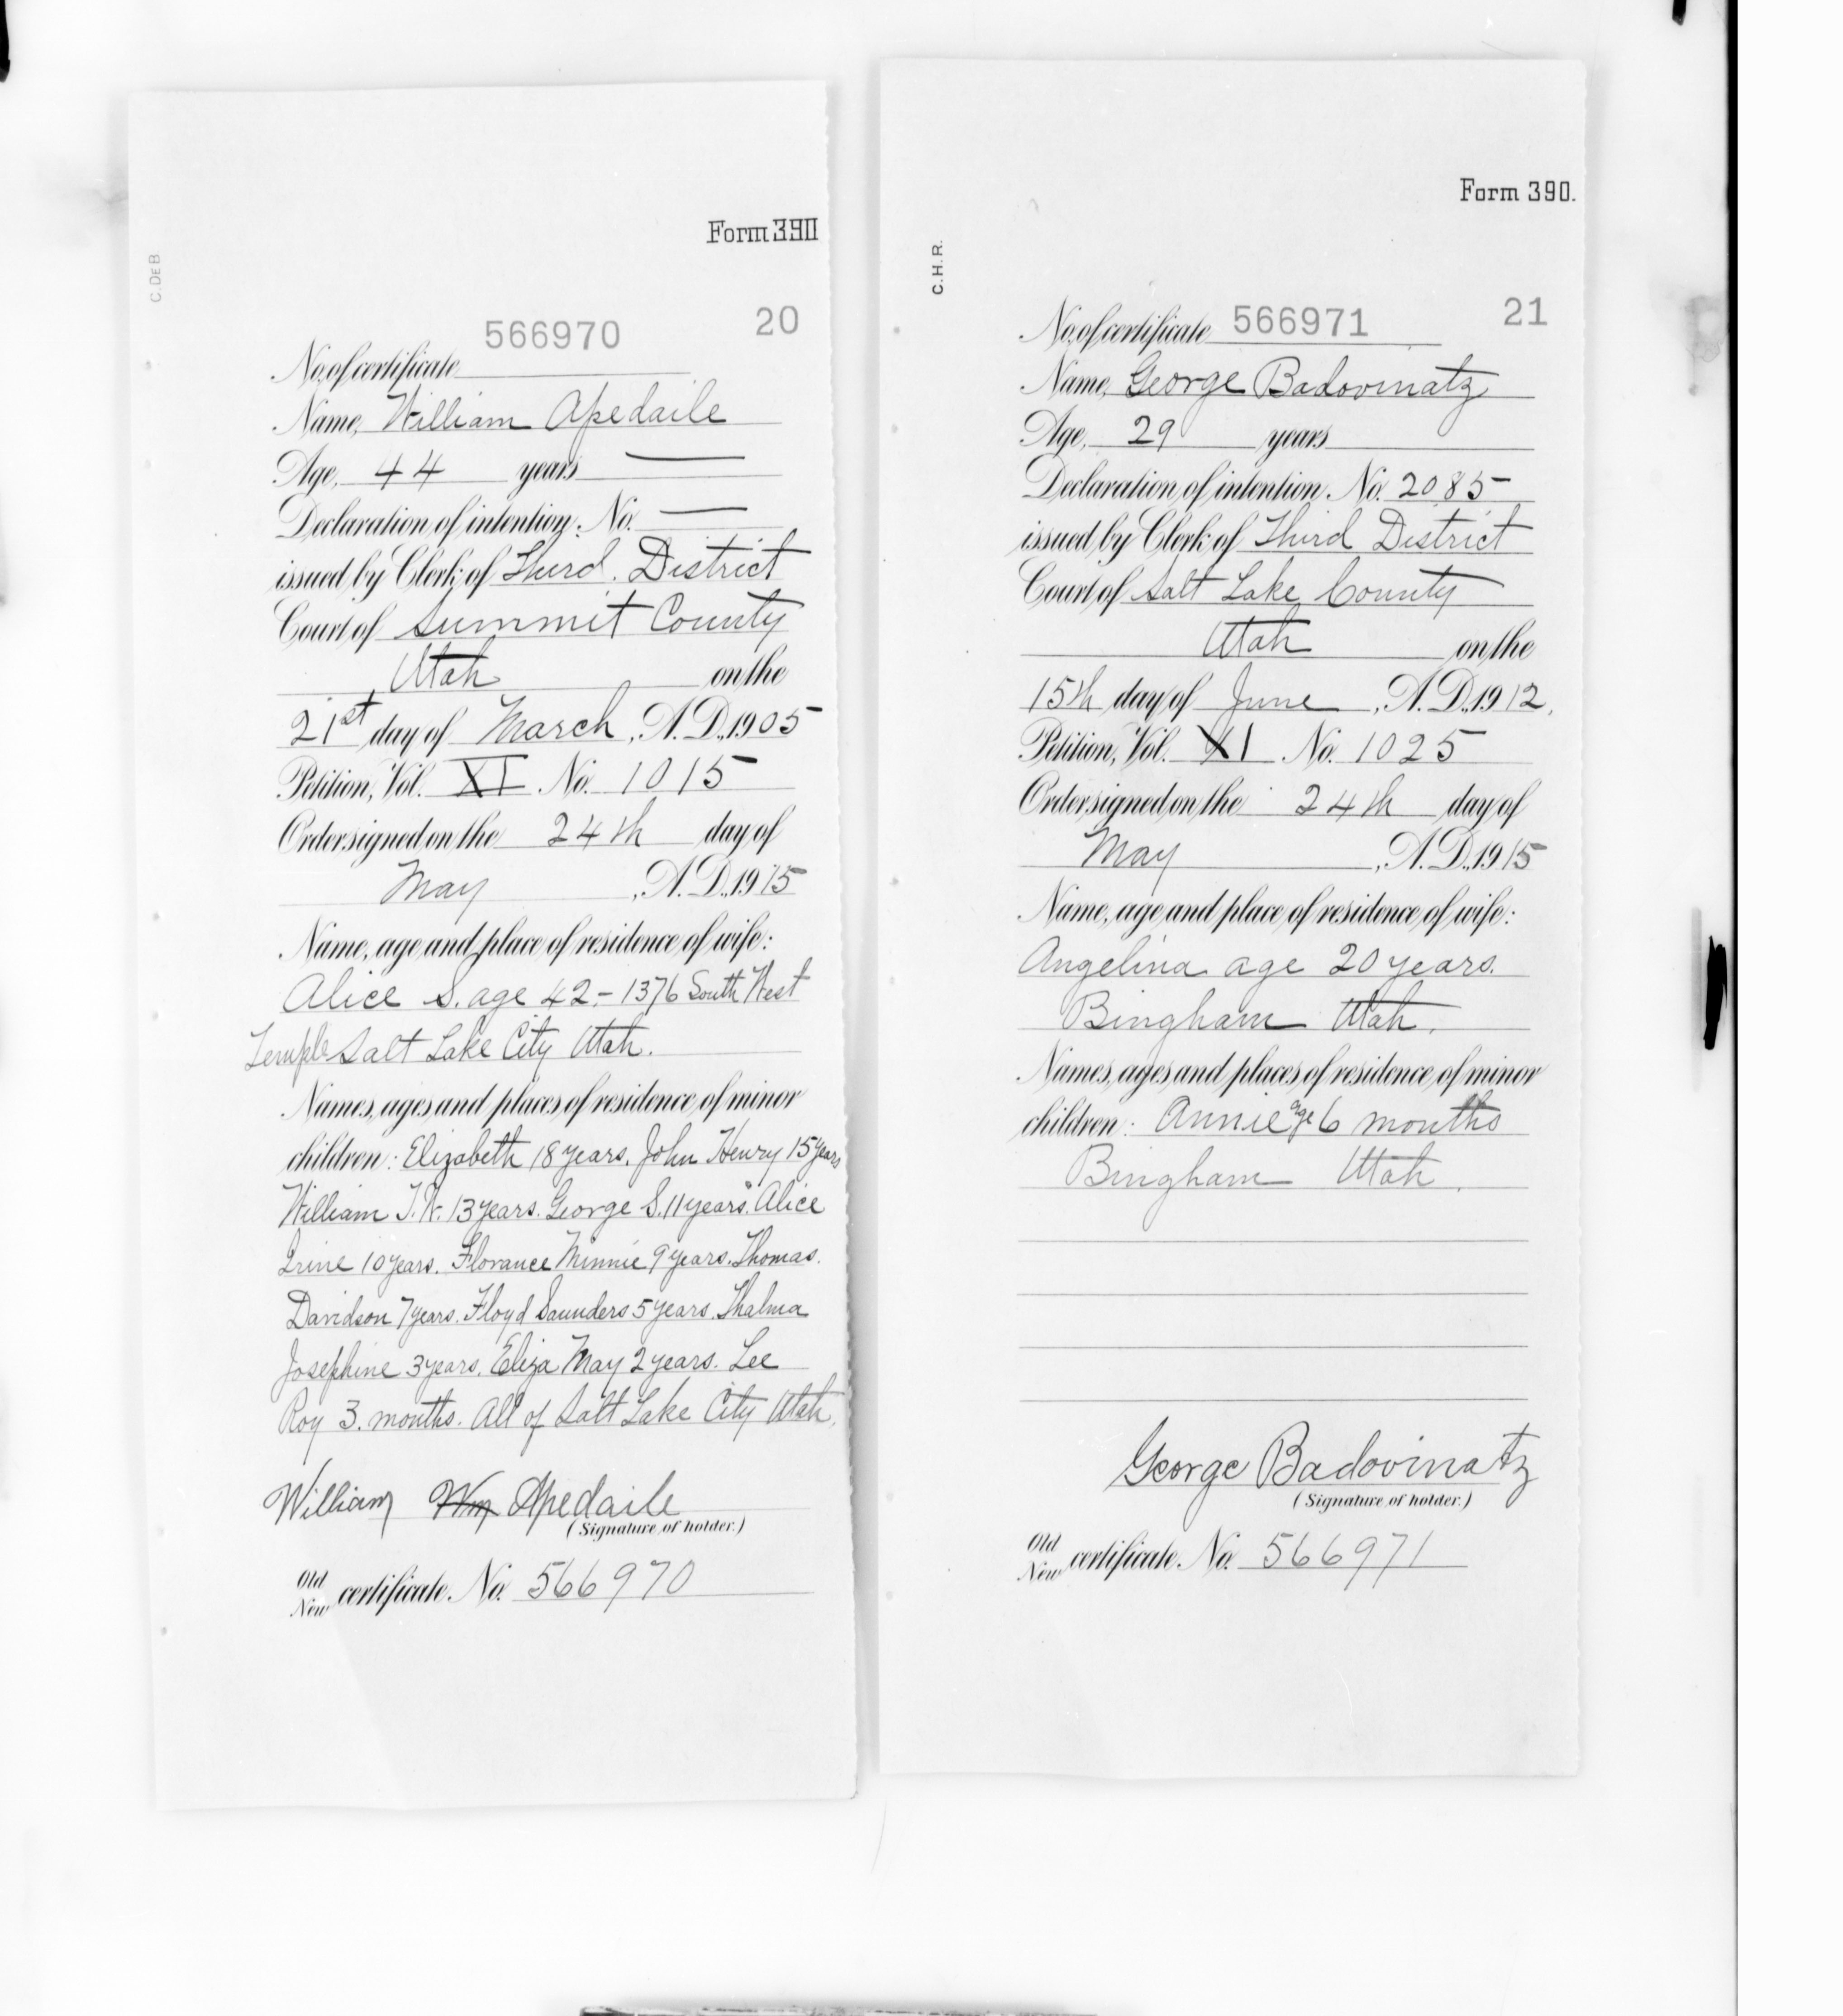 Form 390
C.DEB
566970 20
No. of certificate
Name, William Apedaile
Age, 44 years —
Declaration of intention, No. —
issued by Clerk of Third. District
Court of Summit County
Utah on the
21st day of March, A.D., 1905
Petition, Vol. XI No. 1015
Order signed on the 24th day of
May, A.D., 1915
Name, age and place of residence of wife:
Alice S. age 42.- 1376 South West
Temple Salt Lake City Utah.
Names, ages and places of residence of minor
children: Elizabeth 18 years. John Henry 15 years
William T.W. 13 years. George S. 11 years. Alice
Irine 10 years. Florance Minnie 9 years. Thomas.
Davidson 7 years. Floyd Saunders 5 years. Thalma
Josephine 3 years. Eliza May 2 years. Lee
Roy 3. months. All of Salt Lake City Utah.
William Wm Apedaile
(Signature of holder.)
Old
New certificate. No. 566970
Form 390.
C.H.R.
21
No. of certificate 566971
Name, George Badovinatz
Age, 29 years
Declaration of intention, No. 2085
issued by Clerk of Third District
Court of Salt Lake County
Utah on the
15th day of June, A.D., 1912.
Petition, Vol. XI No. 1025
Order signed on the 24th day of
May, A.D., 1915
Name, age and place of residence of wife:
Angelina age 20 years.
Bingham Utah.
Names, ages and places of residence of minor
children: Annie age 6 months
Bingham Utah.
George Badovinatz
(Signature of holder.)
Old
New certificate. No. 566971